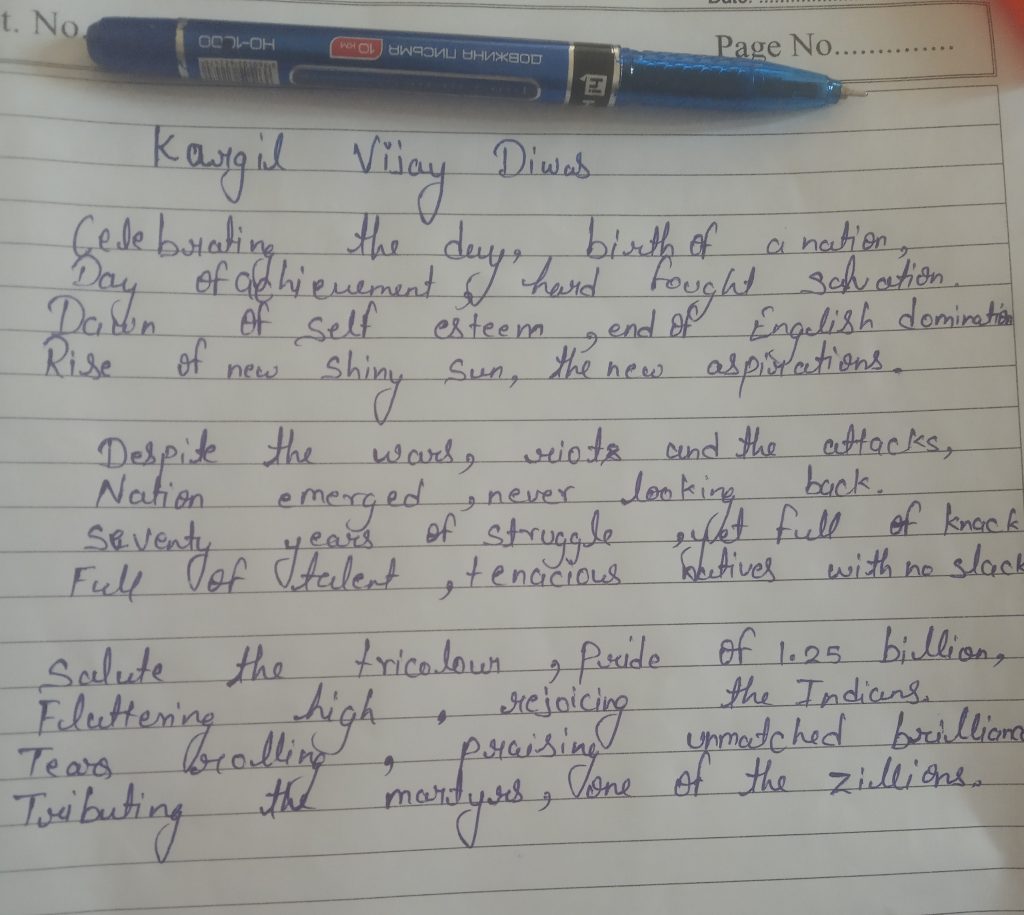 t. No.
Page No..............
HO-1L00
10 KM
ДОВЖИНА ПИСЬМА
Kargil Vijay Diwas
Celebrating the day, birth of a nation,
Day of achievement & hard fought salvation.
Dawn of self esteem, end of English domination
Rise of new shiny sun, the new aspirations.
Despite the wars, riots and the attacks,
Nation emerged, never looking back.
Seventy years of struggle, yet full of knack
Full of talent, tenacious natives with no slack
Salute the tricolour, Pride of 1.25 billion,
Fluttering high, rejoicing the Indians.
Tears rolling, praising unmatched brillianc
Tributing the martyrs, one of the zillions.